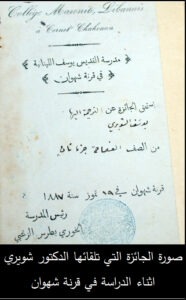 Collège Maronite Libanais
à Cornet Chahouan
مدرسة القديس يوسف اللبنانية
في قرنة شهوان
يستحق الجائزة عن الترجمة
يوسف الشويري
من الصف
قرنة شهوان في ١٩ تموز سنة ١٨٨٧
رئيس المدرسة
الخوري بطرس الزغبي
صورة الجائزة التي تلقائها الدكتور شويري
اثناء الدراسة في قرنة شهوان